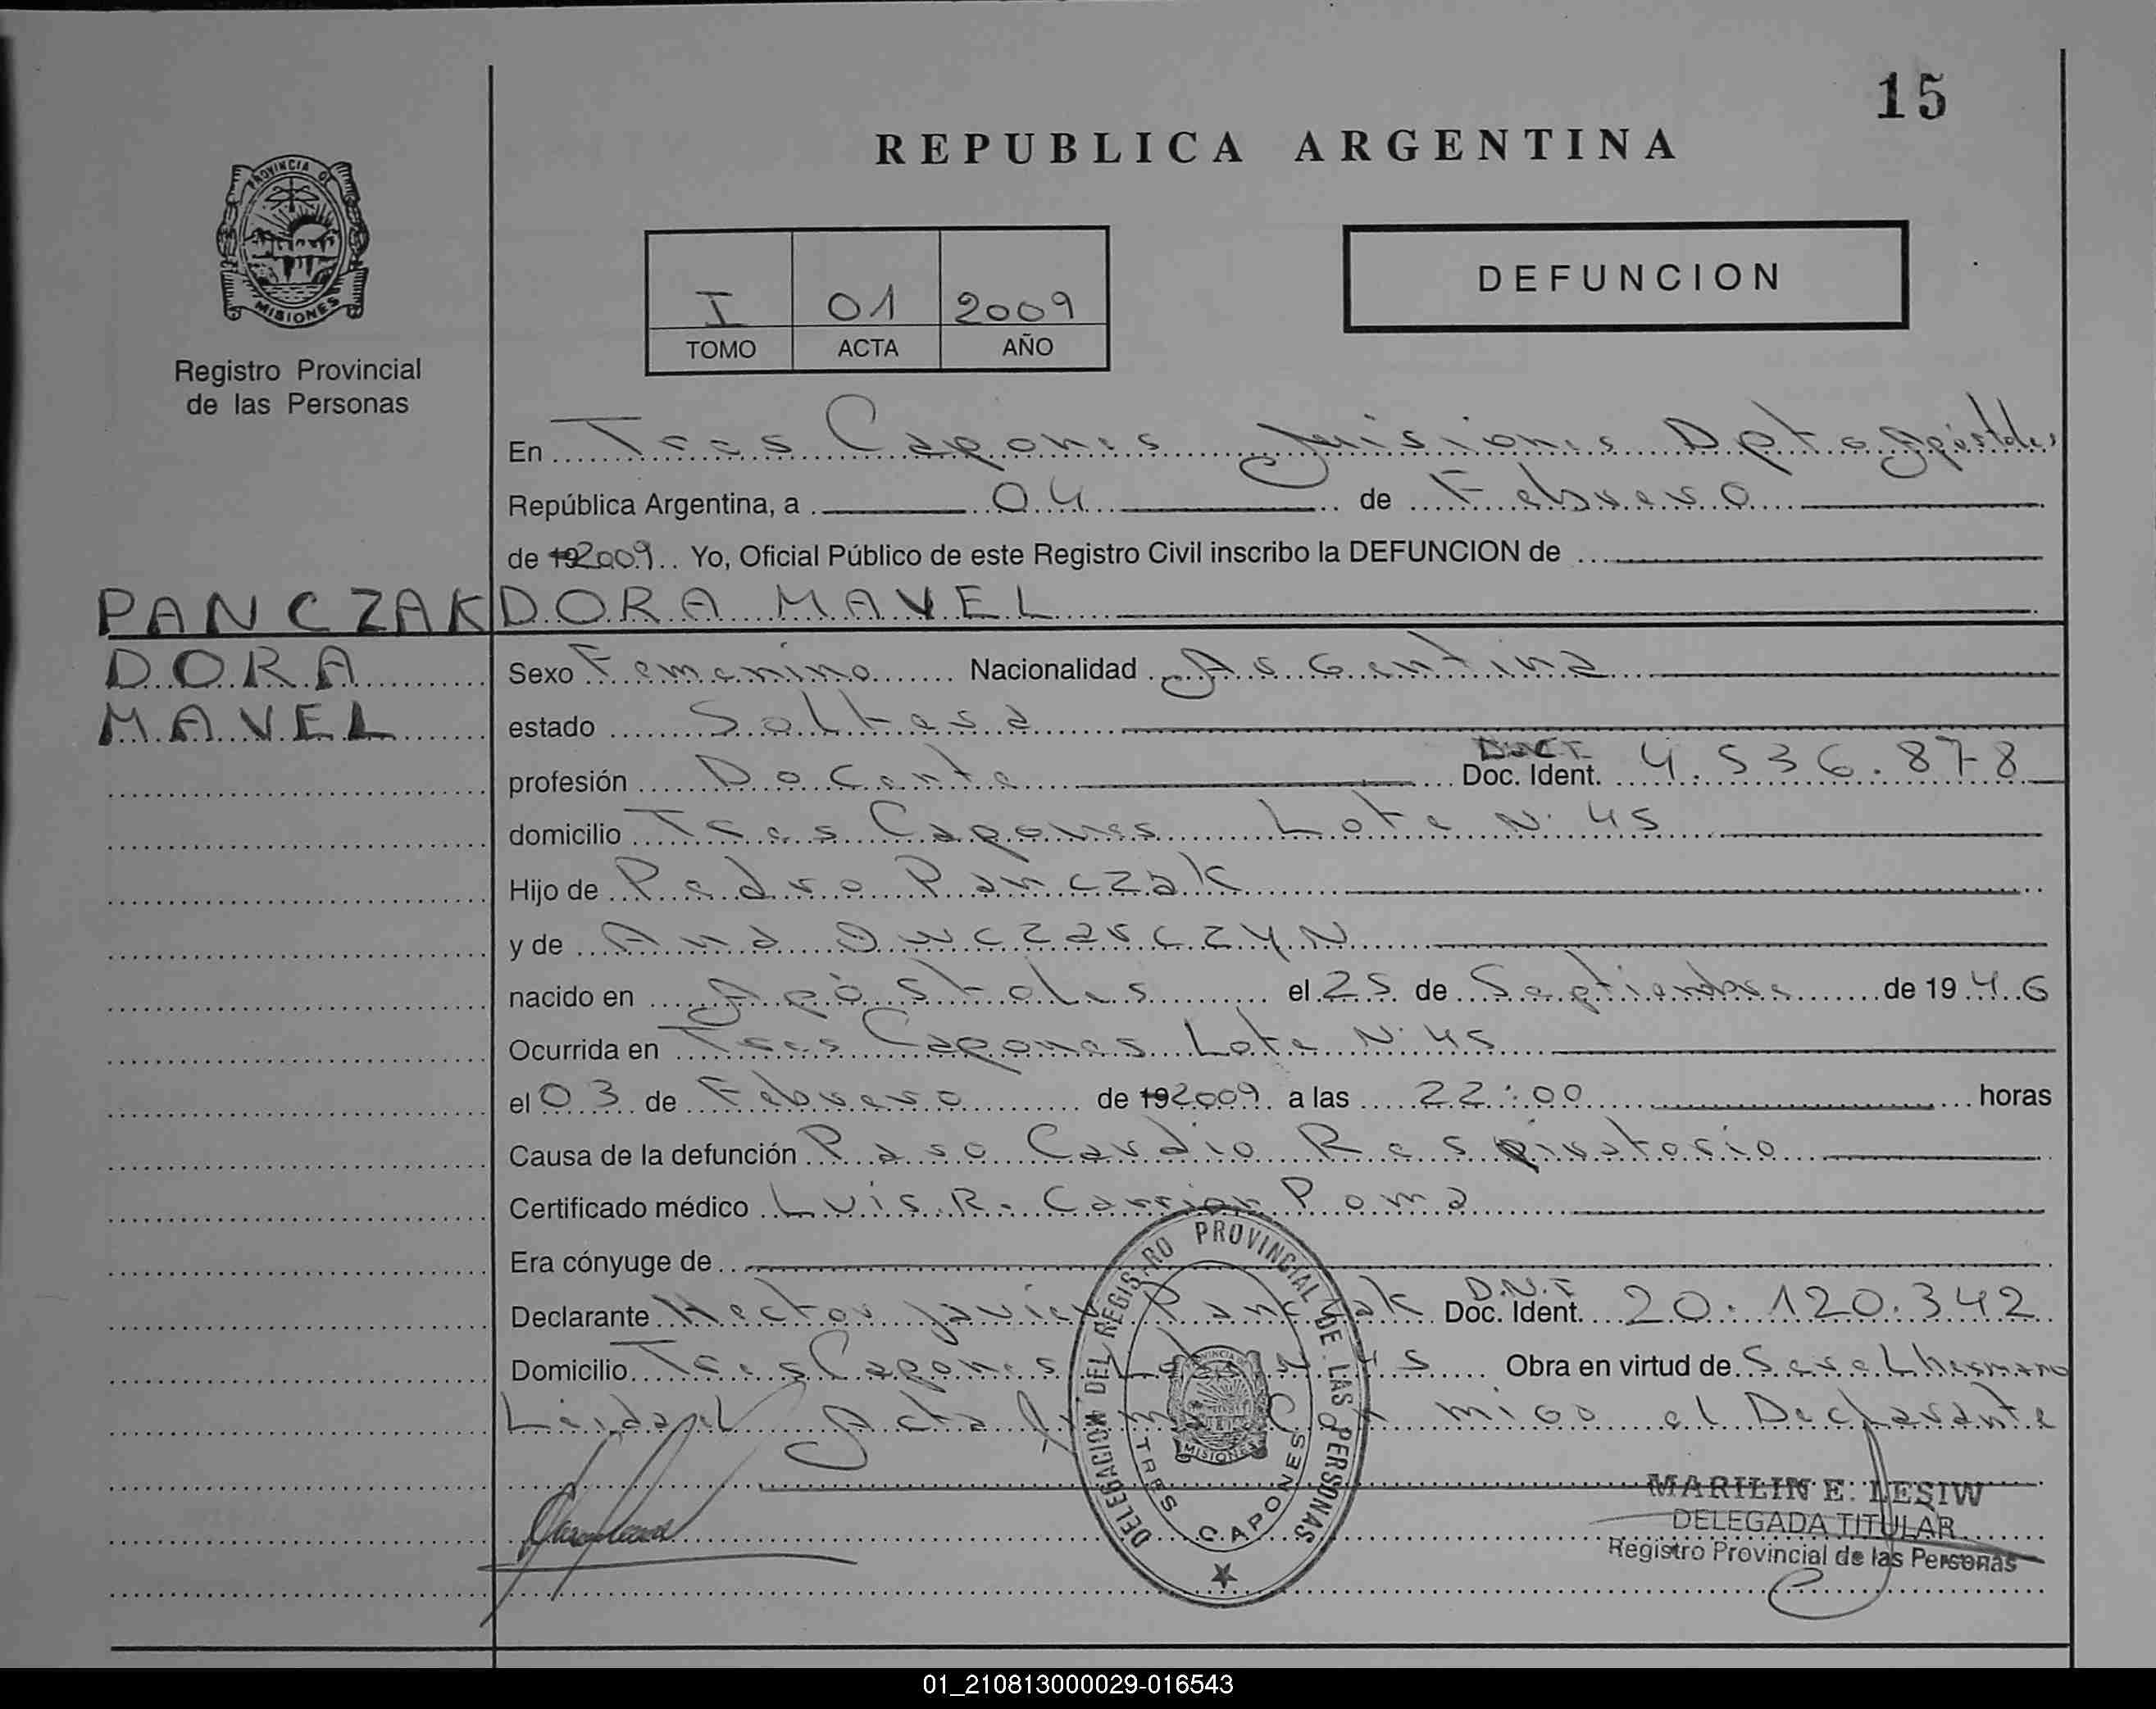 15
REPUBLICA ARGENTINA
PROVINCIA DE
MISIONES
Registro Provincial
de las Personas
I 01 2009
TOMO ACTA AÑO
DEFUNCION
En Tres Capones Misiones Dpto Apóstoles
República Argentina, a 04 de Febrero
de 19 2009 Yo, Oficial Público de este Registro Civil inscribo la DEFUNCION de
PANCZAK DORA MAVEL
DORA
MAVEL
Sexo Femenino Nacionalidad Argentina
estado Soltera
profesión Docente Doc. Ident. 4.536.878
domicilio Tres Capones Lote N° 45
Hijo de Pedro Panczak
y de Ana
nacido en Apóstoles el 25 de Septiembre de 1946
Ocurrida en Tres Capones Lote N° 45
el 03 de Febrero de 19 2009 a las 22:00 horas
Causa de la defunción Paro Cardio Respiratorio
Certificado médico Luis R. Carrion Poma
Era cónyuge de
Declarante Hector Javier Panczak D.N.I. Doc. Ident. 20.120.342
Domicilio Tres Capones 45 Obra en virtud de Ser el hermano
Acta migo el Declarante
DELEGACION DEL REGISTRO PROVINCIAL DE LAS PERSONAS
PROVINCIA DE
MISIONES
TRES CAPONES
MARILIN E. LESIW
DELEGADA TITULAR
Registro Provincial de las Personas
01_210813000029-016543